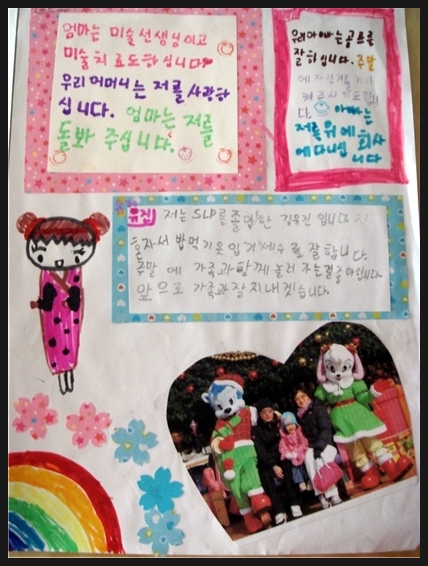 엄마는 미술선생님이고
미술치료도하십니다
우리어머니는 저를 사랑하
십니다. 엄마는 저를
돌봐 주십니다.
우리아빠는골프를
잘하십니다. 주말
에 자전거를
다. 아빠는
저를위에 회사
에다니십
니다
유진 저는 SLP를졸업한 김유진 입니다
혼자서 밥먹기 옷입기 세수를 잘합니다.
주말에 가족과함께 놀러 가는걸좋아합니다.
앞으로 가족과잘지내겠습니다.